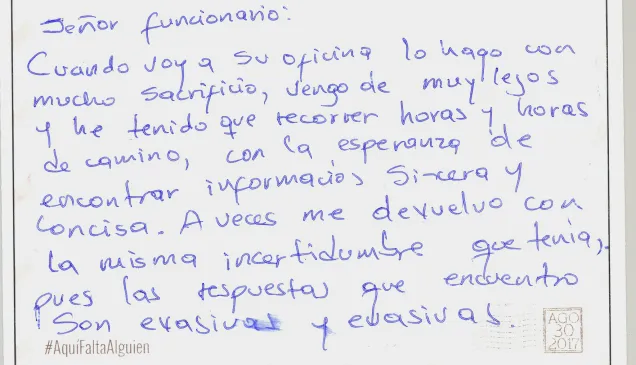 Señor funcionario:
Cuando voy a su oficina lo hago con
mucho sacrificio, vengo de muy lejos
y he tenido que recorrer horas y horas
de camino, con la esperanza de
encontrar información sincera y
concisa. A veces me devuelvo con
la misma incertidumbre que tenía,
pues las respuestas que encuentro
son evasivas y evasivas.
#AquíFaltaAlguien
AGO
30
2017